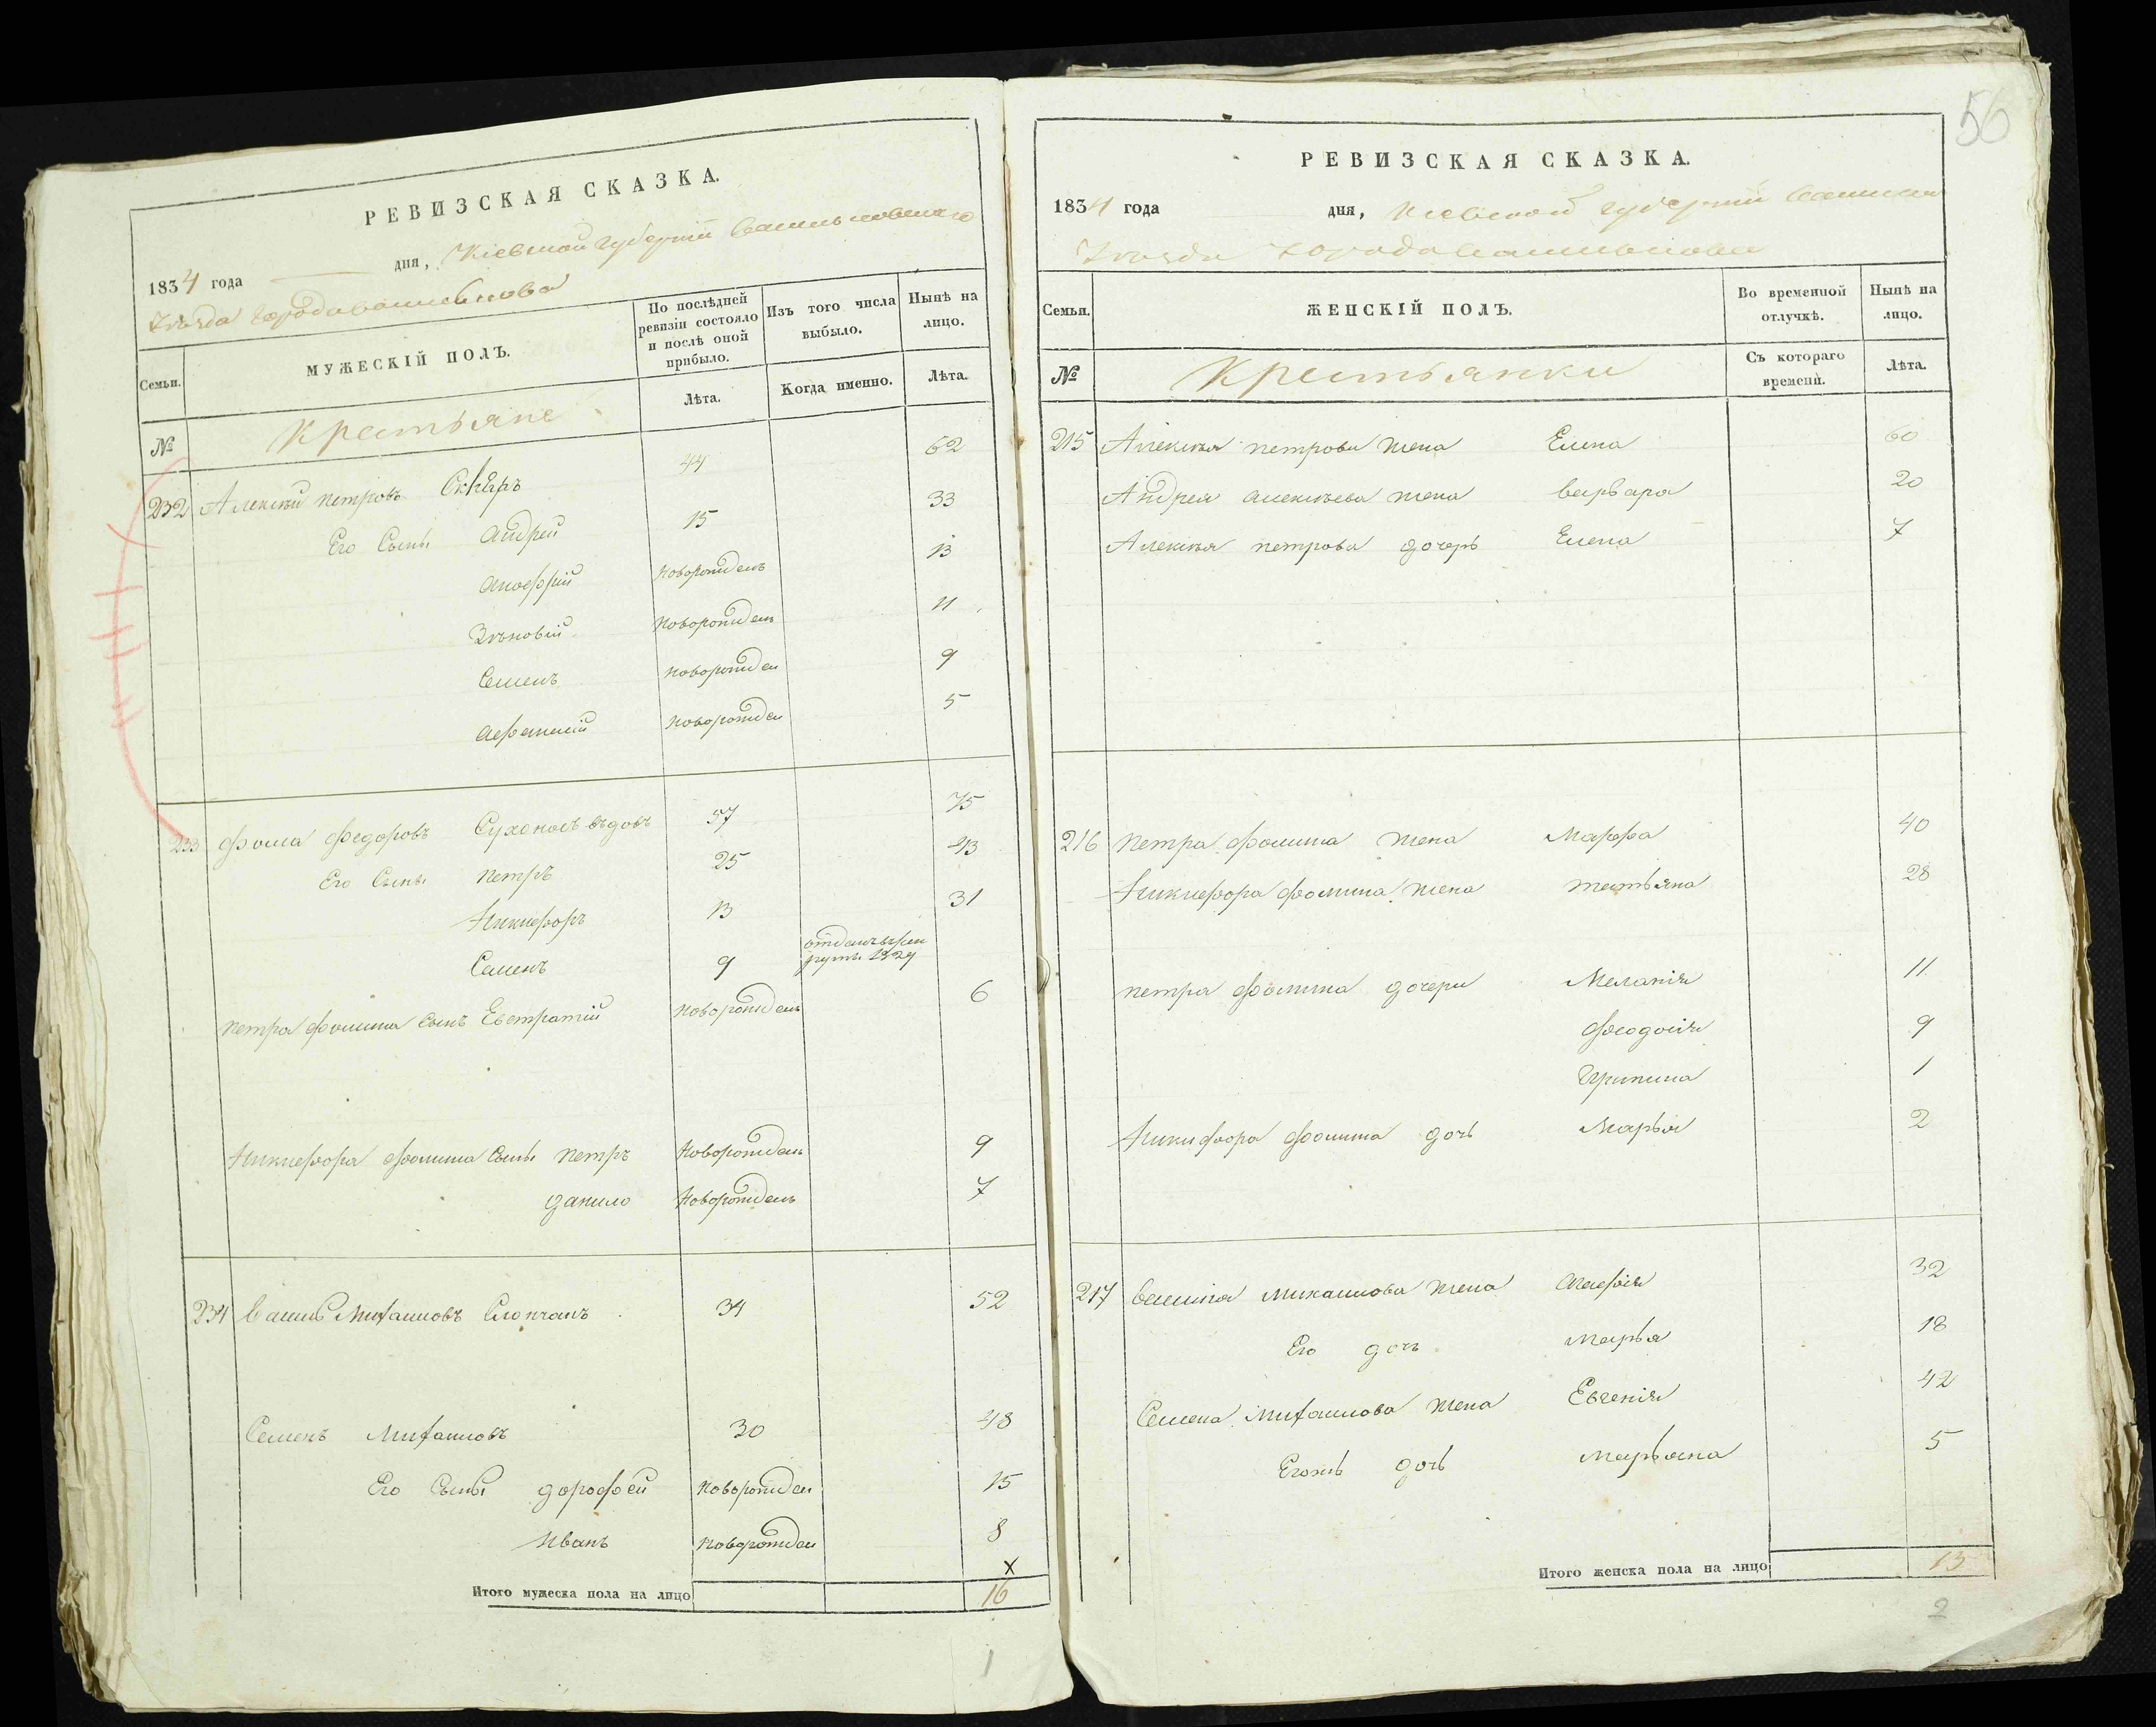 РЕВИЗСКАЯ СКАЗКА.
1834 года дня, Кіевской губерніи Васильковскаго
Уѣзда города Василькова
Семьи.
МУЖЕСКІЙ ПОЛЪ.
По послѣдней ревизіи состояло и послѣ оной прибыло.
Изъ того числа выбыло.
Нынѣ на лицо.
№
Крестьяне
Лѣта.
Когда именно.
Лѣта.
232 Алексѣй петровъ Скляръ 44 62
Его Сыны андрей 15 33
аноффрій новорожденъ 13
Зѣновій новорожден 11
Семенъ новорожден 9
афанасій новорожден 5
233 фома федоровъ Сухоносъ вдовъ 57 75
Его Сыны петръ 25 43
Никифоръ 13 31
Семенъ 9 отданъ в рекруты 1829
петра фомина сынъ Евстратій новорожденъ 6
Никифора фомина Сыны петръ Новорожденъ 9
данило Новорожденъ 7
234 Василь Михаиловъ Слопчанъ 34 52
Семенъ Михаиловъ 30 48
Его Сыны дорофей новорожден 15
Иванъ новорожден 8
х
Итого мужеска пола на лицо 16
1
56
РЕВИЗСКАЯ СКАЗКА.
1834 года дня, Кіевской губерніи Василько
Уѣзда города Василькова
Семьи.
ЖЕНСКІЙ ПОЛЪ.
Во временной отлучкѣ.
Нынѣ на лицо.
№
Крестьянки
Съ котораго времени.
Лѣта.
215 Алексѣя петрова жена Елена 60
Андрея алексѣева жена варвара 20
Алексѣя петрова дочерь Елена 7
216 петра фомина жена Марфа 40
Никифора фомина жена татьяна 28
петра фомина дочери Меланія 11
феодосія 9
Ирипина 1
Никифора фомина дочь Марья 2
217 василія михаилова жена агафія 32
Его дочь марья 18
Семена Михаилова жена Евгенія 42
Егожъ дочь марьяна 5
Итого женска пола на лицо 13
2